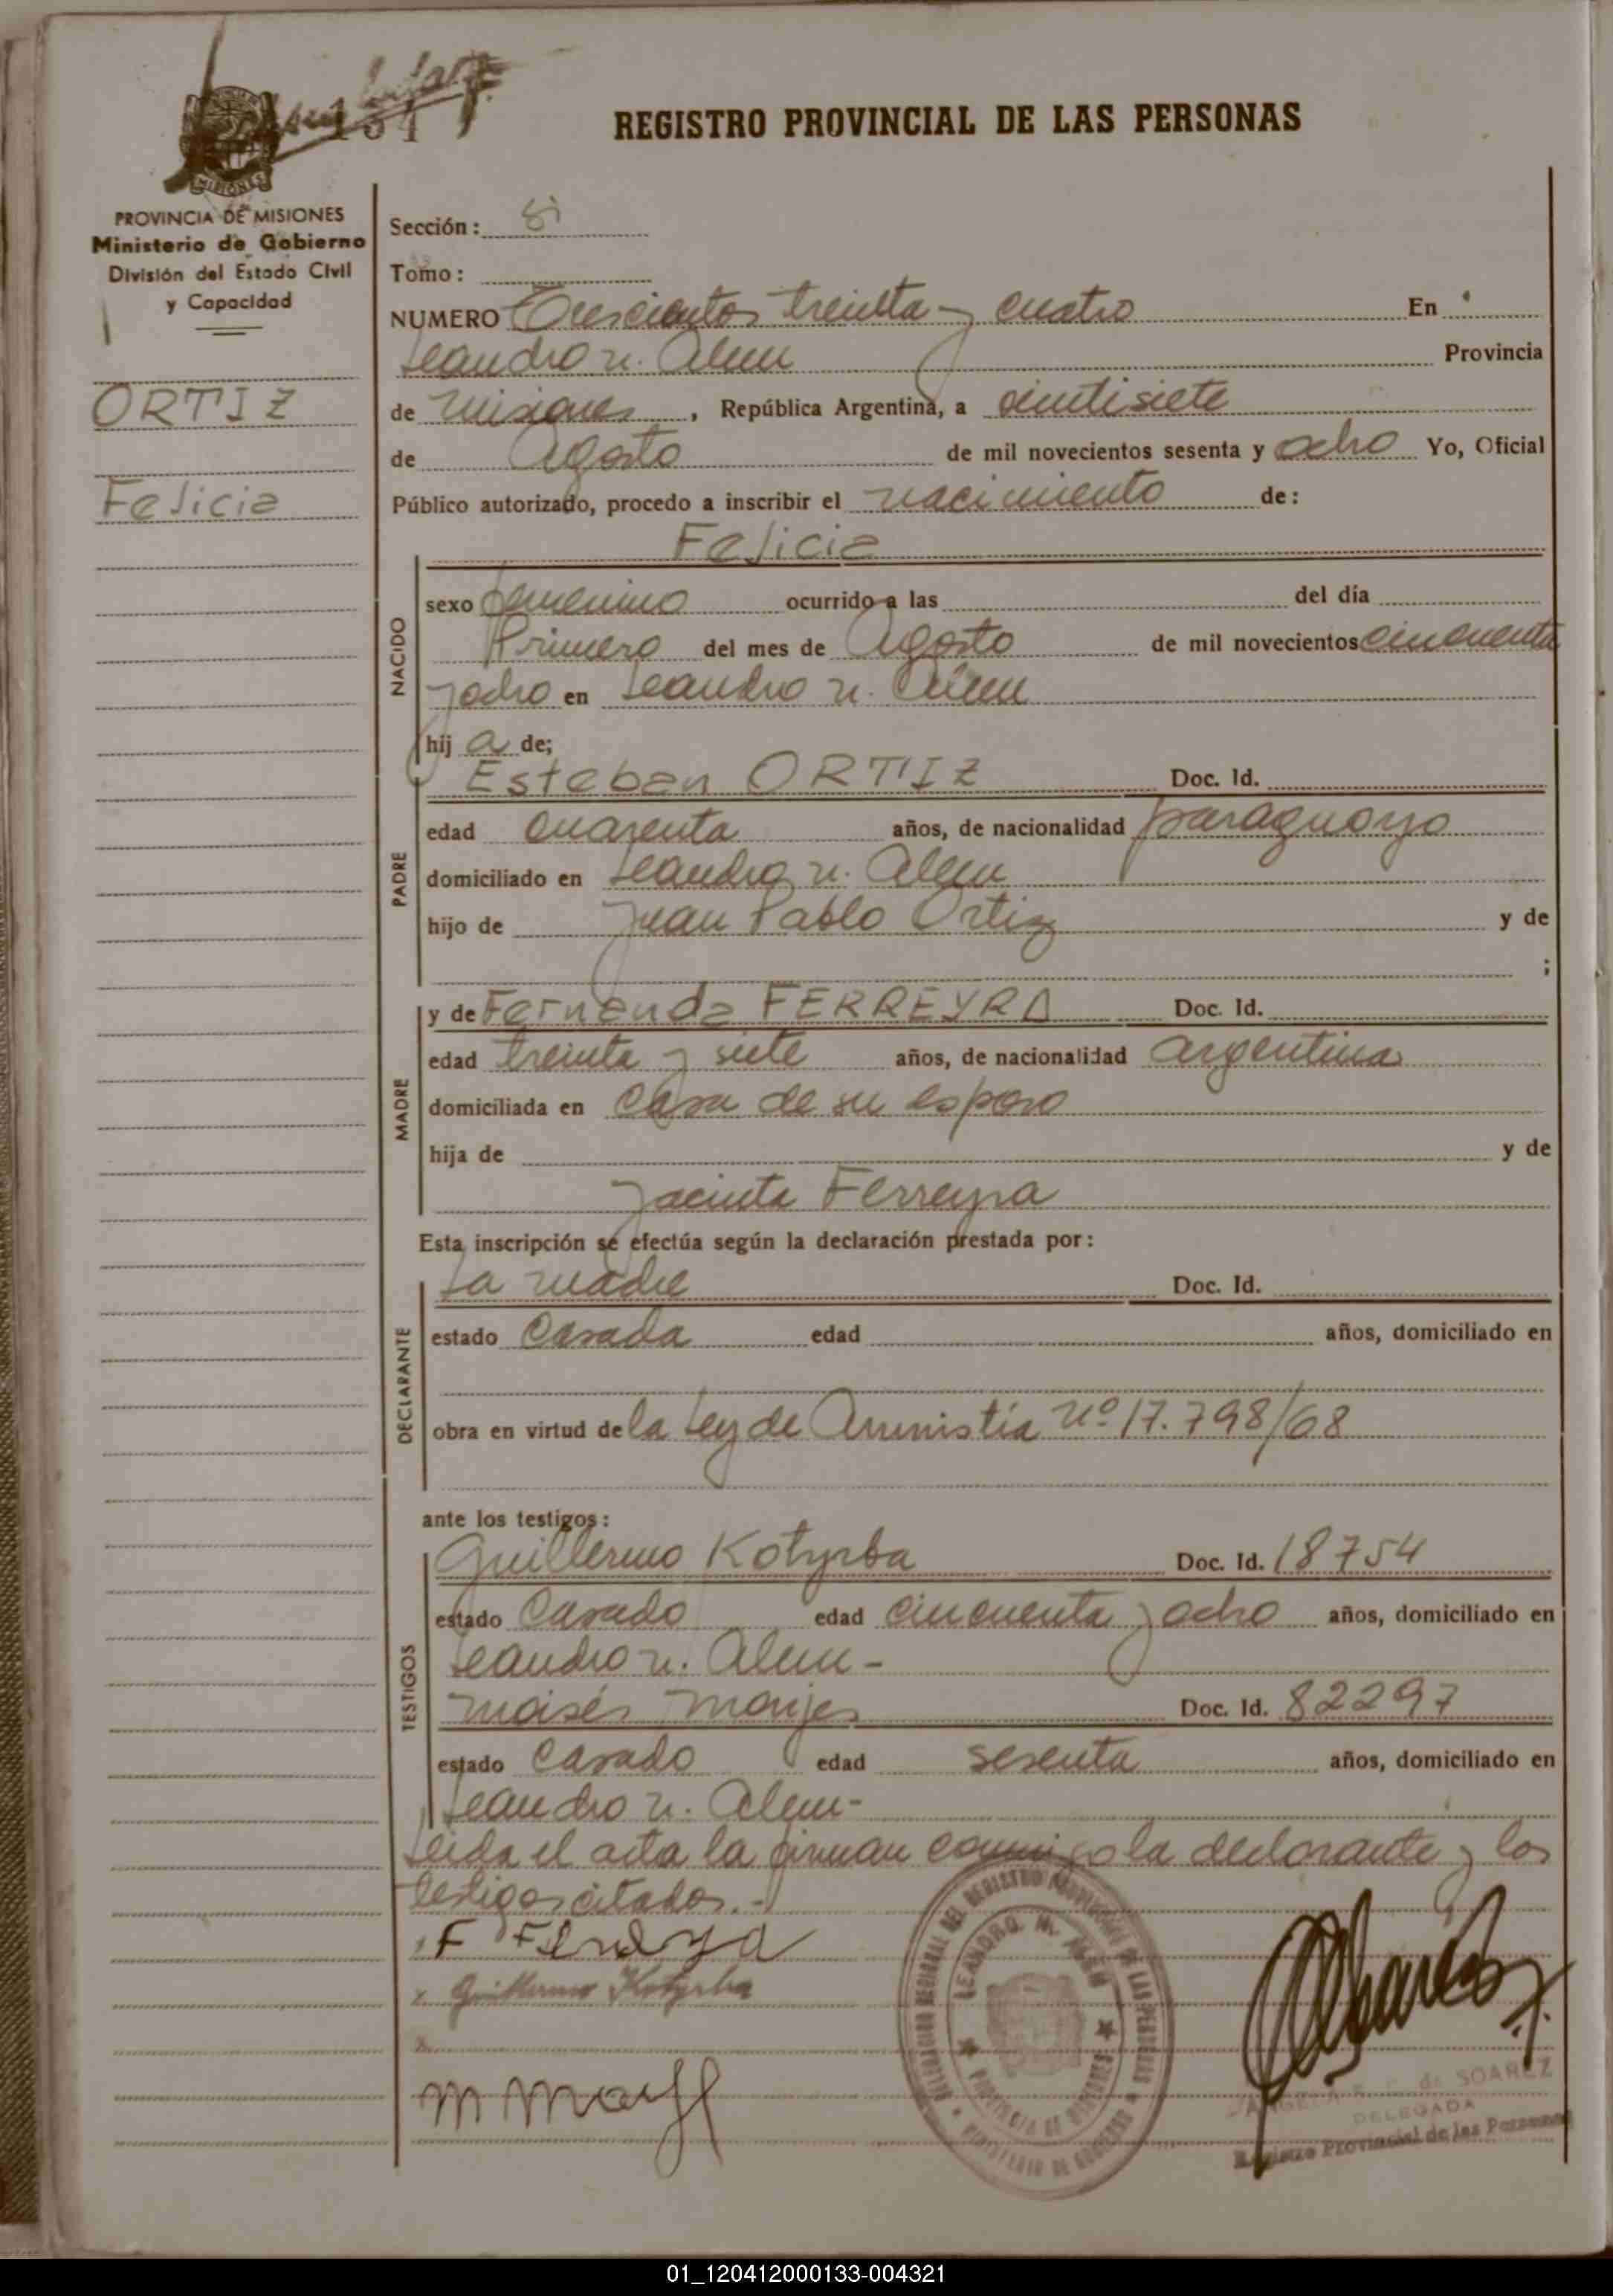 REGISTRO PROVINCIAL DE LAS PERSONAS
PROVINCIA DE MISIONES
Ministerio de Gobierno
División del Estado Civil
y Capacidad
ORTIZ
Felicia
Sección:
Tomo:
NUMERO Trescientos treinta y cuatro En
Leandro N. Alem Provincia
de Misiones, República Argentina, a veintisiete
de Agosto de mil novecientos sesenta y ocho Yo, Oficial
Público autorizado, procedo a inscribir el nacimiento de:
Felicia
NACIDO
sexo femenino ocurrido a las del día
Primero del mes de Agosto de mil novecientos cincuenta
y ocho en Leandro N. Alem
hij a de;
PADRE
Esteban ORTIZ Doc. Id.
edad cuarenta años, de nacionalidad paraguayo
domiciliado en Leandro N. Alem
hijo de Juan Pablo Ortiz y de
;
MADRE
y de Fernanda FERREYRA Doc. Id.
edad treinta y siete años, de nacionalidad argentina
domiciliada en casa de su esposo
hija de y de
Jacinta Ferreyra
Esta inscripción se efectúa según la declaración prestada por:
DECLARANTE
La madre Doc. Id.
estado Casada edad años, domiciliado en
obra en virtud de la Ley de Amnistía Nº 17.798/68
ante los testigos:
TESTIGOS
Guillermo Kotyrba Doc. Id. 18754
estado Casado edad cincuenta y ocho años, domiciliado en
Leandro N. Alem -
Moisés Doc. Id. 82297
estado Casado edad sesenta años, domiciliado en
Leandro N. Alem -
Leida el acta la firman conmigo la declarante y los
testigos citados.-
F Fereyra
x Guillermo Kotyrba
x
LEANDRO N. ALEM
PROVINCIA DE MISIONES
de SOAREZ
DELEGADA
Registro Provincial de las Personas
01_120412000133-004321